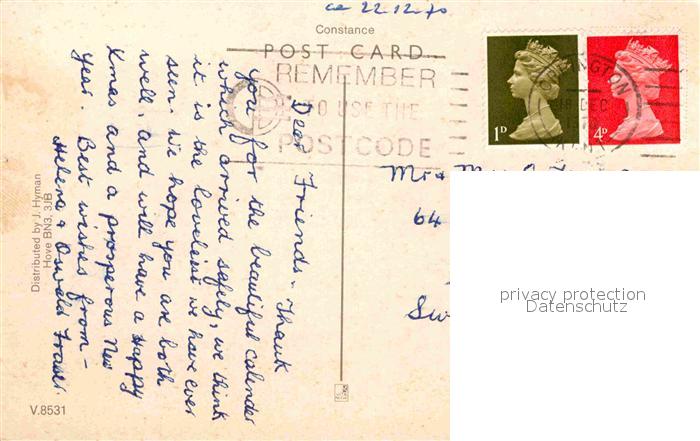 ca 22.12.70
Constance
POST CARD
REMEMBER
TO USE THE
POSTCODE
1D
4D
ORPINGTON
18 DEC
KENT
Dear Friends - Thank
you for the beautiful calender
which arrived safely, we think
it is the loveliest we have ever
seen. We hope you are both
well, and will have a Happy
Xmas and a prosperous New
Year. Best wishes from -
Helena & Oswald Fraser.
Mr & Mrs
64
Sw
privacy protection
Datenschutz
Distributed by J. Hyman
Hove BN3, 3JB
V.8531